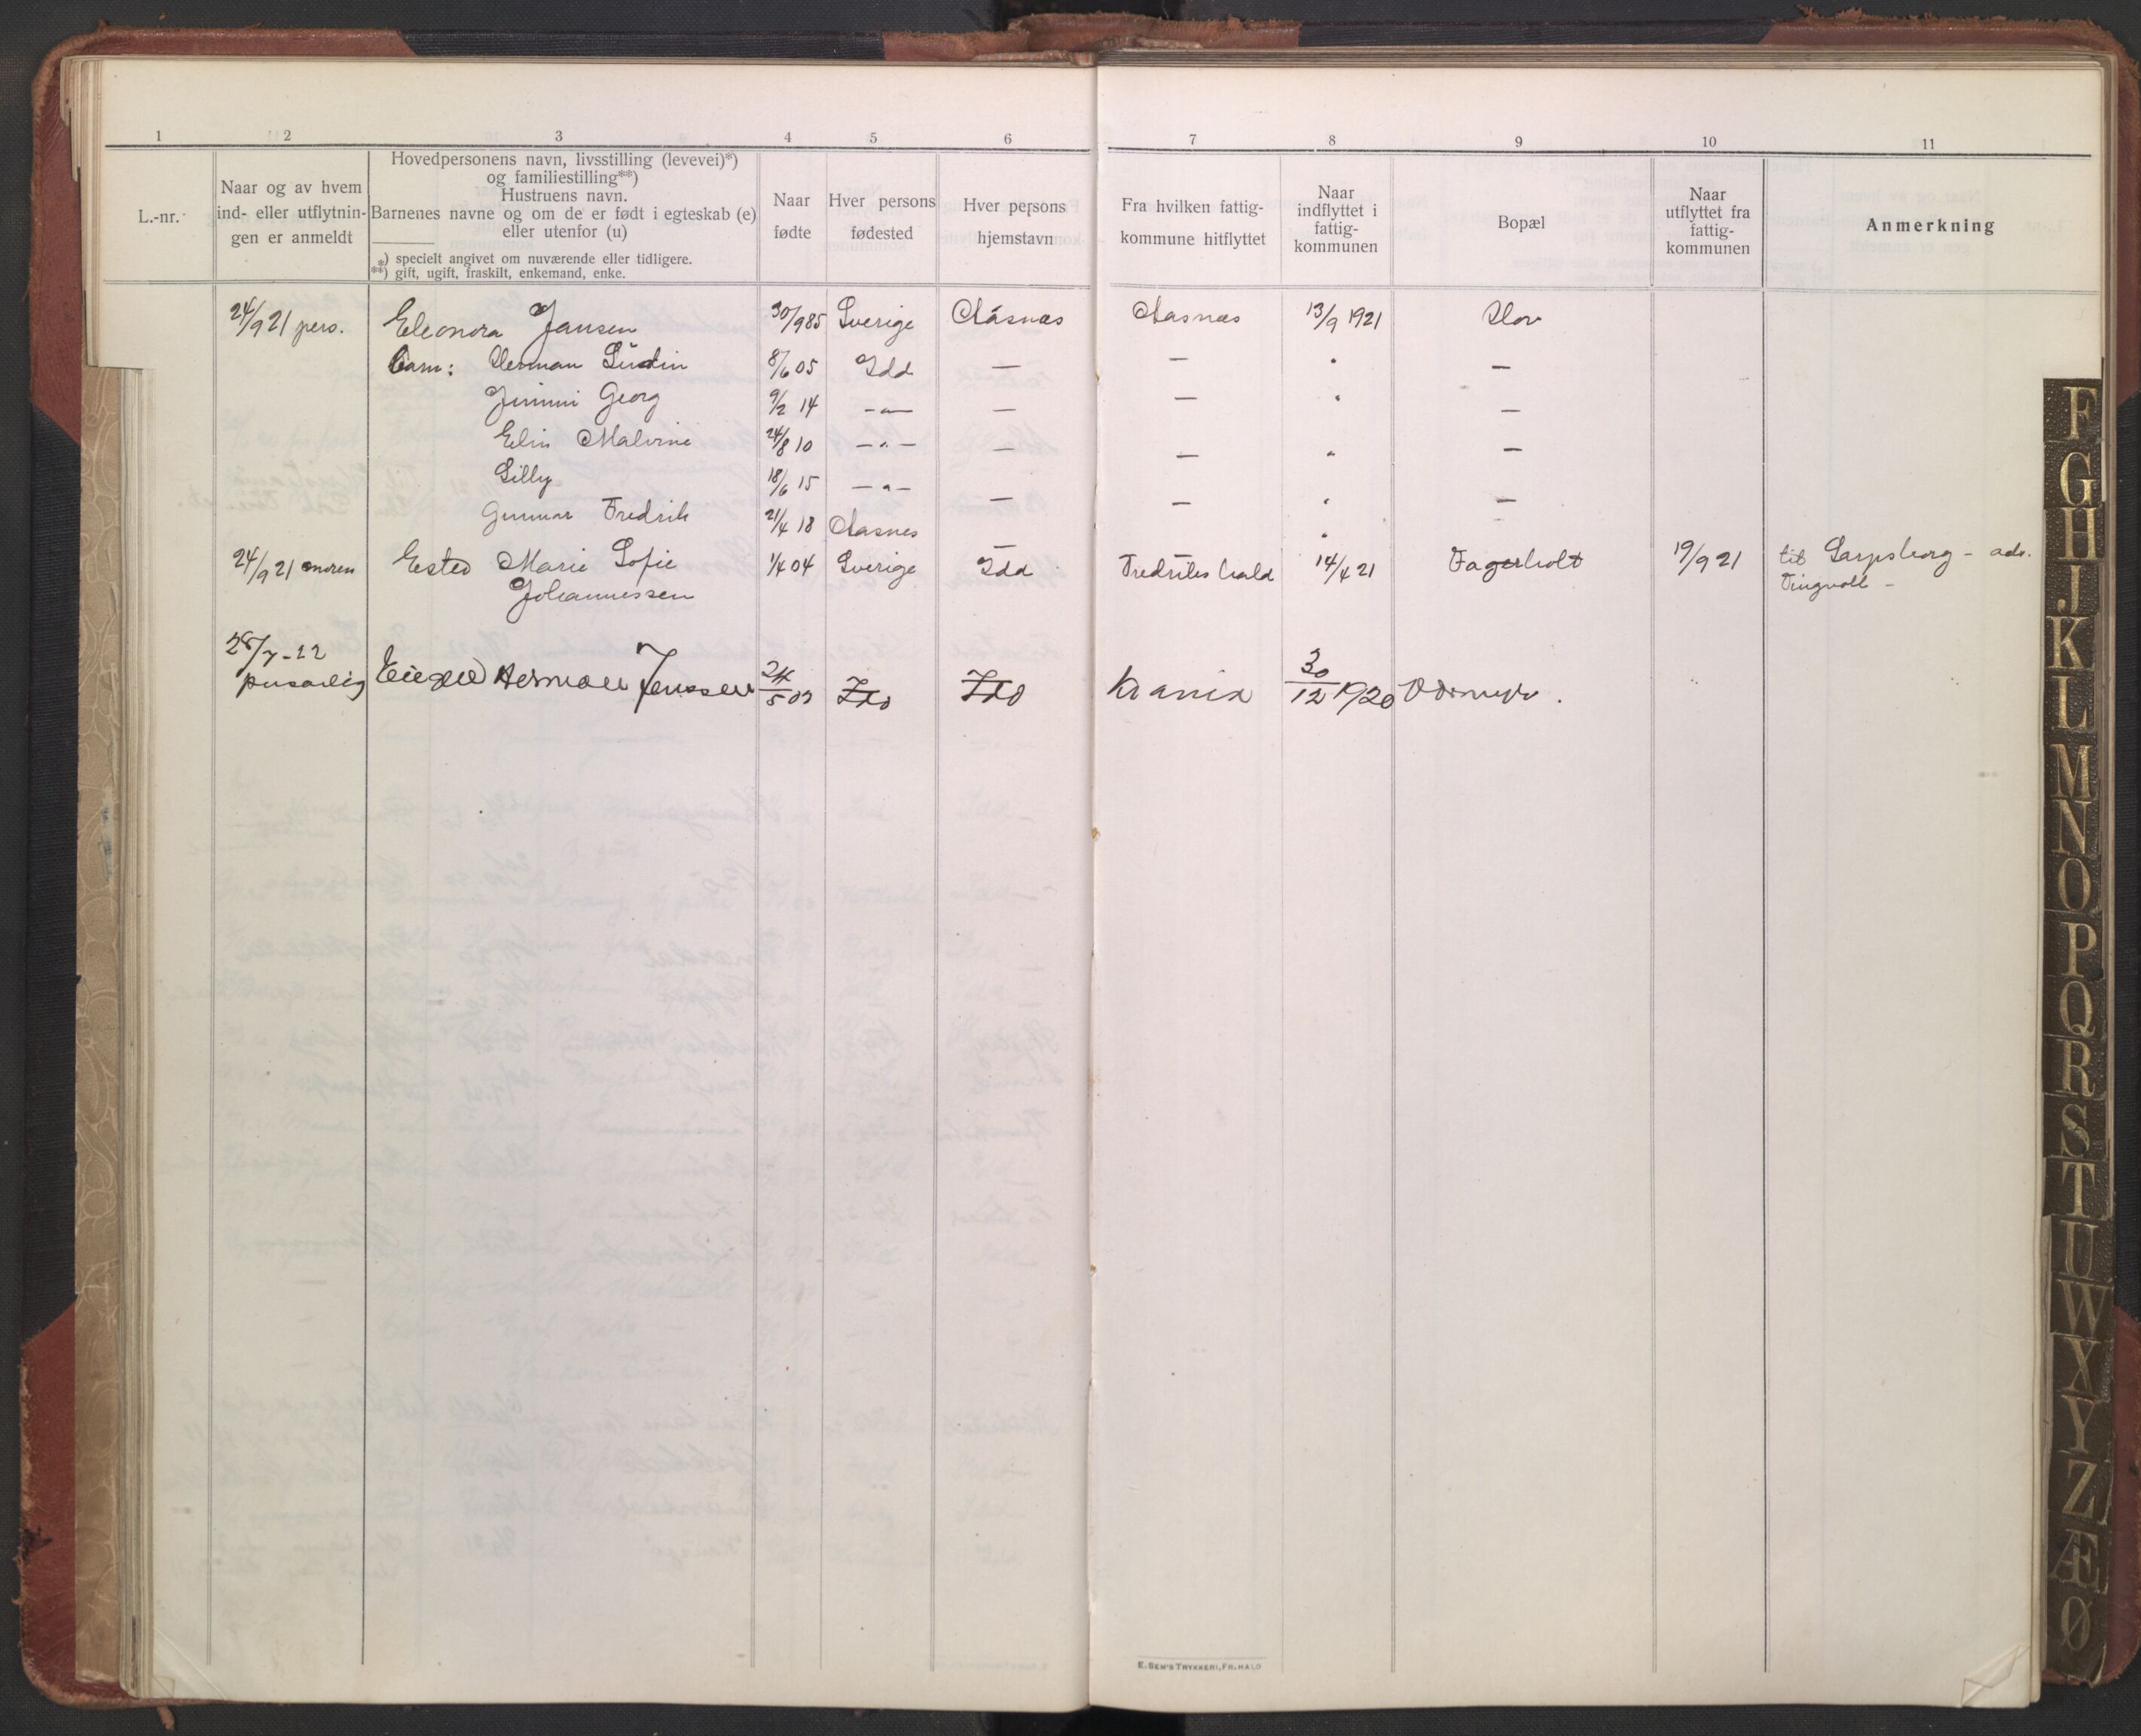 1 2 3 4 5 6 7 8 9 10 11
L.-nr.
Naar og av hvem
ind- eller utflytnin-
gen er anmeldt
Hovedpersonens navn, livsstilling (levevei)*)
og familiestilling**)
Hustruens navn.
Barnenes navne og om de er født i egteskab (e)
eller utenfor (u)
*) specielt angivet om nuværende eller tidligere.
**) gift, ugift, fraskilt, enkemand, enke.
Naar
fødte
Hver persons
fødested
Hver persons
hjemstavn
Fra hvilken fattig-
kommune hitflyttet
Naar
indflyttet i
fattig-
kommunen
Bopæl
Naar
utflyttet fra
fattig-
kommunen
Anmerkning
24/9 21 pers. Eleonora Jansen 30/9 85 Sverige Aasnæs Aasnæs 13/9 1921
Barn: Herman 8/6 05 Idd — — " —
Jimmi Georg 9/2 14 —"— — — " —
Elin Malvine 24/8 10 —"— — — " —
Lilly 18/6 15 —"— — — " —
Gunnar Fredrik 21/4 18 Aasnes — — " —
24/9 21 Ester Marie Sofie 1/4 04 Sverige Idd Fredrikshald 14/4 21 Fagerholt 19/9 21 til Sarpsborg - adr.
Johannessen Tingvoll -
28/7-22
personlig Herman Jenssen 24/5 Idd Idd 30/12 1920
E. SEM'S TRYKKERI, FR.HALD
F
G
H
J
K
L
M
N
O
P
Q
R
S
T
U
W
X
Y
Z
Æ
Ø